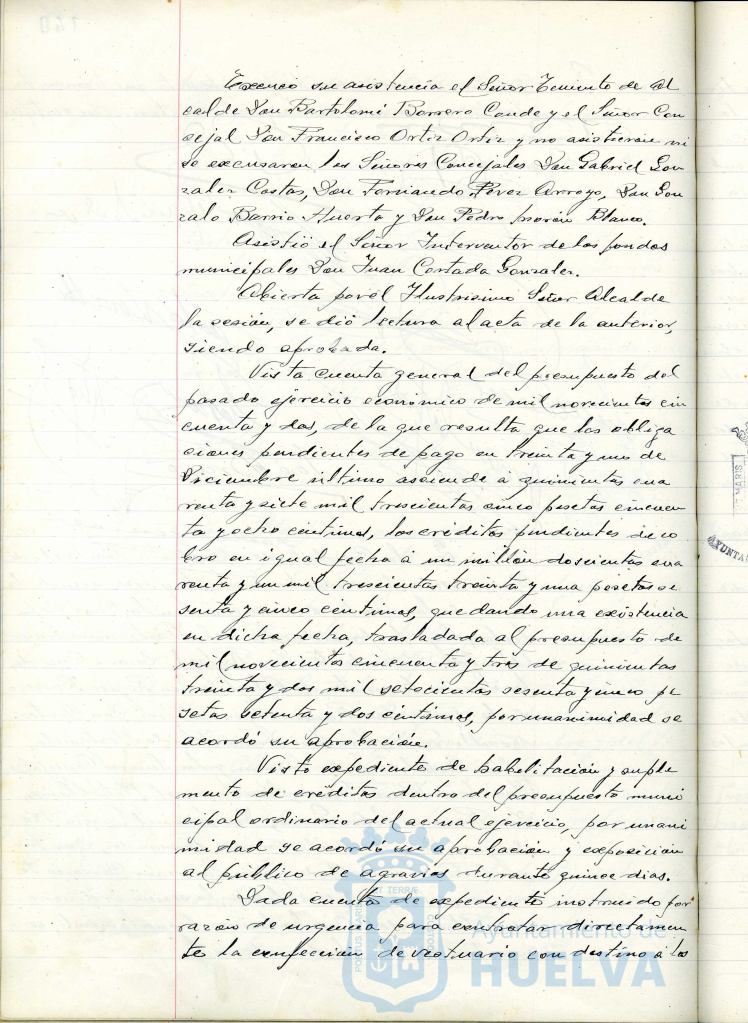 Excusó su asistencia el Señor Teniente de Al
calde Don Bartolomé Borrero Conde y el Señor Con
sejal Don Francisco Ortiz Ortiz y no asistieron ni
se excusaron los Señores Concejales Don Gabriel Gon
zalez Costas, Don Fernando Perez Arroyo, Don Gon
zalo Barrio Huerta y Don Pedro Morón Blanco.
Asistió el Señor Interventor de los fondos
municipales Don Juan Cortada Gonzalez.
Abierta por el Ilustrisimo Señor Alcalde
la sesión, se dió lectura al acta de la anterior,
siendo aprobada.
Vista cuenta general del presupuesto del
pasado ejercicio económico de mil novecientos cin
cuenta y dos, de la que resulta que las obliga
ciones pendientes de pago en treinta y uno de
Diciembre ultimo asciende á quinientas cua
renta y siete mil trescientas cinco pesetas cincuen
ta y ocho centimos, los créditos pendientes de co
bro en igual fecha á un millón doscientas cua
renta y un mil trescientas treinta y una pesetas se
senta y cinco centimos, quedando una existencia
en dicha fecha, trasladada al presupuesto de
mil novecientos cincuenta y tres de quinientas
treinta y dos mil setecientas sesenta y cinco pe
setas setenta y dos centimos, por unanimidad se
acordó su aprobación.
Visto expediente de habilitación y suple
mento de créditos dentro del presupuesto muni
cipal ordinario del actual ejercicio, por unani
midad se acordó su aprobación y exposición
al público de agravios durante quince dias.
Dada cuenta de expediente instruido por
razón de urgencia para contratar directamen
te la confección de vestuario con destino á los
Ayuntamiento de
HUELVA